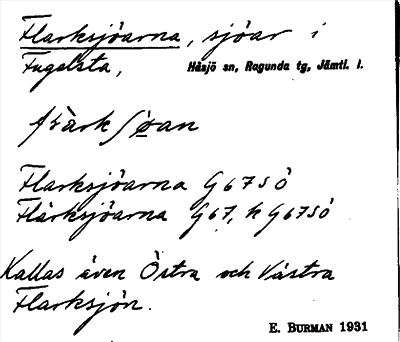 Flarksjöarna, sjöar i
Fugelsta, Håsjö sn, Ragunda tg, Jämtl. l.
Flarksjöarna G67SÖ
Flärksjöarna G67, k G67SÖ
Kallas även Östra och Västra
Flarksjön.
E. BURMAN 1931